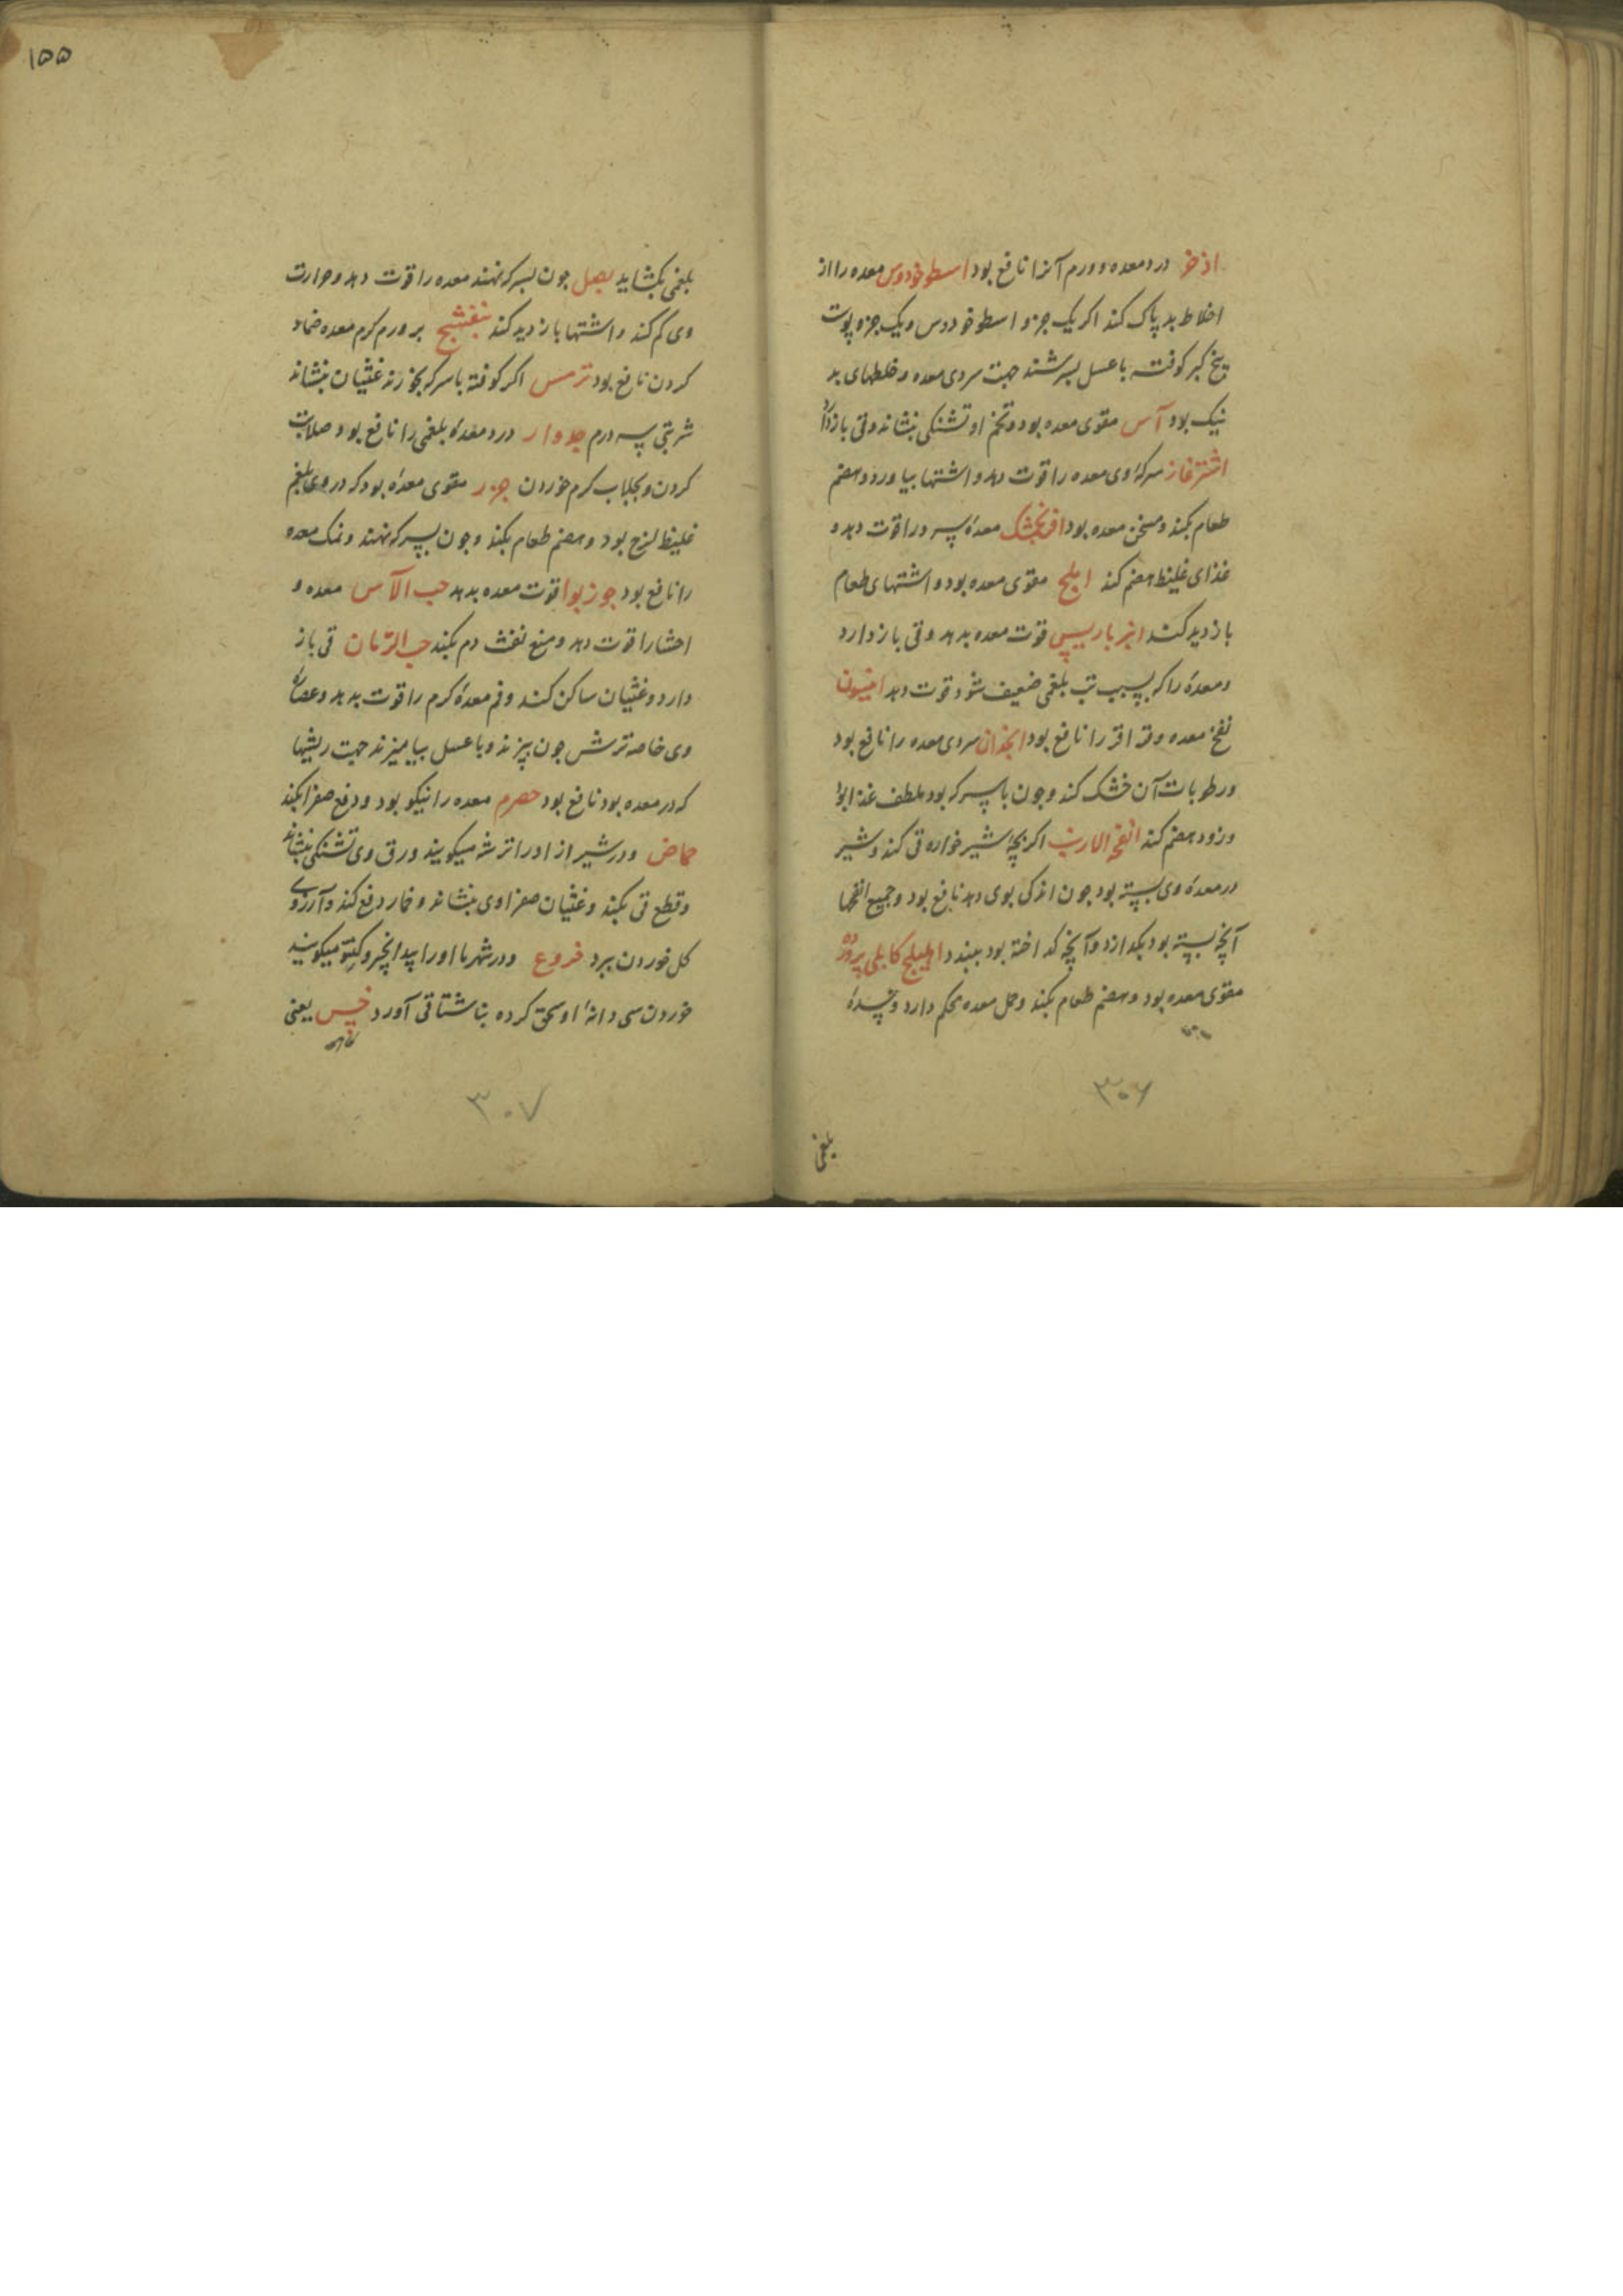 اذخر درد معده و ورم آنرا نافع بود اسطوخودوس معده را از
اخلاط بد پاک کند اکر یک جزو اسطوخودوس و یک جزو پوست
بیخ کبر کوفته با عسل بسرشند جهت سردی معده و خلطهای بد
نیک بود آس مقوی معده بود و تخم او تشنکی بنشاند و قی باز دارد
اشترغاز سرکهٔ وی معده را قوت دهد و اشتها بیاورد و هضم
طعام بکند و مسخن معده بود افرنجمشک معدهٔ سرد را قوت دهد و
غذای غلیظ هضم کند املج مقوی معده بود و اشتهای طعام
بازدید کند انبرباریس قوت معده بدهد و قی باز دارد
و معدهٔ را که بسبب تب بلغمی ضعیف شود قوت دهد انیسون
نفخ معده و قراقر را نافع بود انجذان سردی معده را نافع بود
و رطوبات آن خشک کند و جون با سرکه بود ملطف غذا بود
و زود هضم کند انفحه الارنب اکر بچهٔ شیرخواره قی کند و شیر
در معدهٔ وی بسته بود جون اندکی بوی دهند نافع بود و جمیع انفحها
آنچه بسته بود بکدازد و آنچه کداخته بود ببندد اهلیلج کابلی پرورده
مقوی معده بود و هضم طعام بکند و خمل معده محکم دارد و سدهٔ
۳۰۶
بلغمی
۱۵۵
بلغمی بکشاید بصل جون بسرکه نهند معده را قوت دهد و حرارت
وی کم کند و اشتها بازدید کند بنفشج بر ورم کرم معده ضماد
کردن نافع بود ترمس اکر کوفته با سرکه بخورند غثیان بنشاند
شربتی سه درم جدوار درد معدهٔ بلغمی را نافع بود و صلابت
کردن و بجلاب کرم خوردن جزر مقوی معدهٔ بود که در وی بلغم
غلیظ لزج بود و هضم طعام بکند و جون بسرکه نهند و نمک معده
را نافع بود جوزبوا قوت معده بدهد حب الآس معده و
احشا را قوت دهد و منع نفث دم بکند حب الرمان قی باز
دارد و غثیان ساکن کند و فم معدهٔ کرم را قوت بدهد و عصارهٔ
وی خاصه ترش جون بپزند و با عسل بیامیزند جهت ریشها
که در معده بود نافع بود حصرم معده را نیکو بود و دفع صفرا بکند
حماض و در شیراز او را ترشه میکویند ورق وی تشنکی بنشاند
و قطع قی بکند و غثیان صفراوی بنشاند و خمار دفع کند و آرزوی
کل خوردن ببرد خروع و در شهر ما او را بیدانجیر و کنتو میکویند
خوردن سی دانهٔ او سحق کرده بناشتا قی آورد خس یعنی
کاهو
۳۰۷